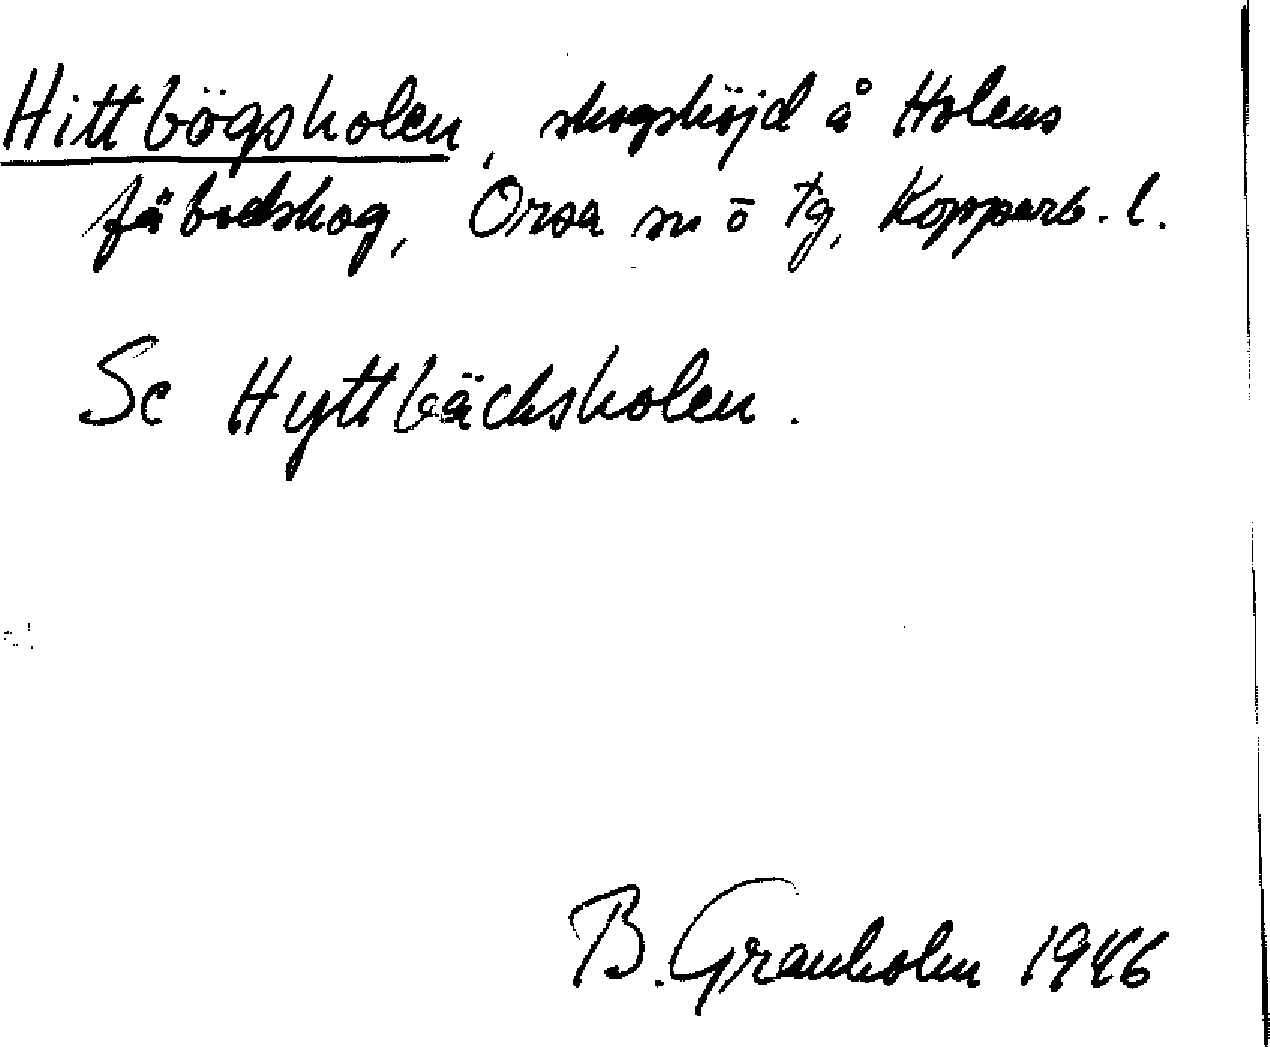 Hittbögsholen, skogshöjd å Holens
fäbodskog, Orsa sn o tg, Kopparb. l.
Se Hyttbäcksholen.
B. Granholm 1946